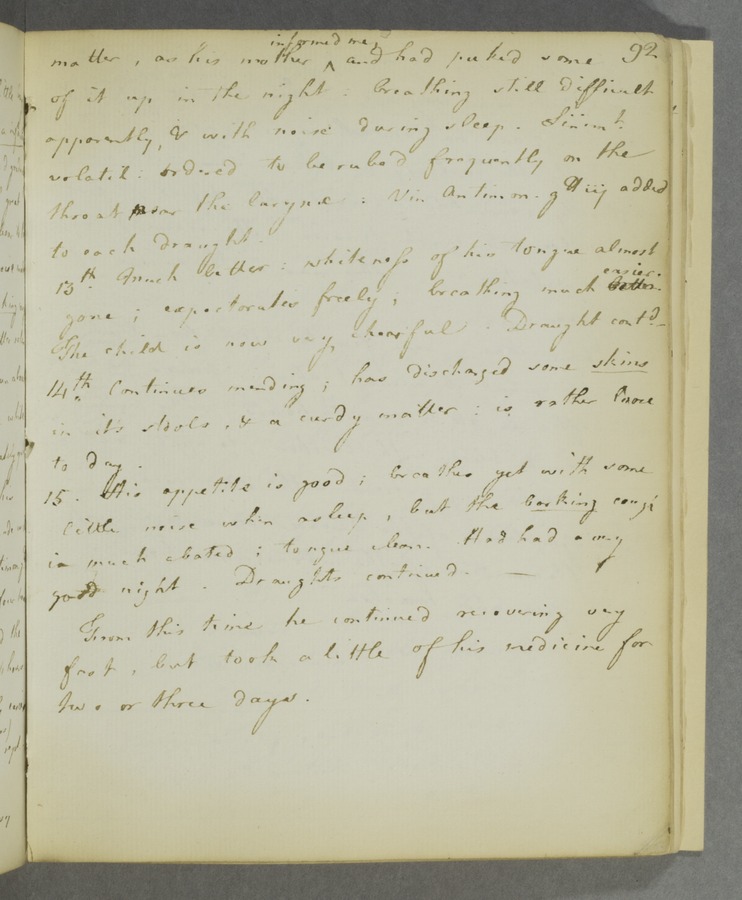 92
matter, as his mother informed me, and had puked some
of it up in the night: breathing still difficult
apparently, & with noise during sleep. Linimt.
volatil: ordered to be rubed frequently on the
throat near the larynx: Vin Antimon. gtt iij added
to each draught.
13th. Much better: whiteness of his tongue almost
gone; expectorates freely; breathing much better easier.
The child is now very chearful. Draught contd.
14th. Continues mending; has discharged some skins
in its stools & a curdy matter: is rather loose
to day.
15. His appetite is good; breathes yet with some
little noise when asleep, but the barking cough
is much abated; tongue clean. Had had a very
good night. Draughts continued. —
From this time he continued recovering very
fast, but took a little of his medicine for
two or three days.